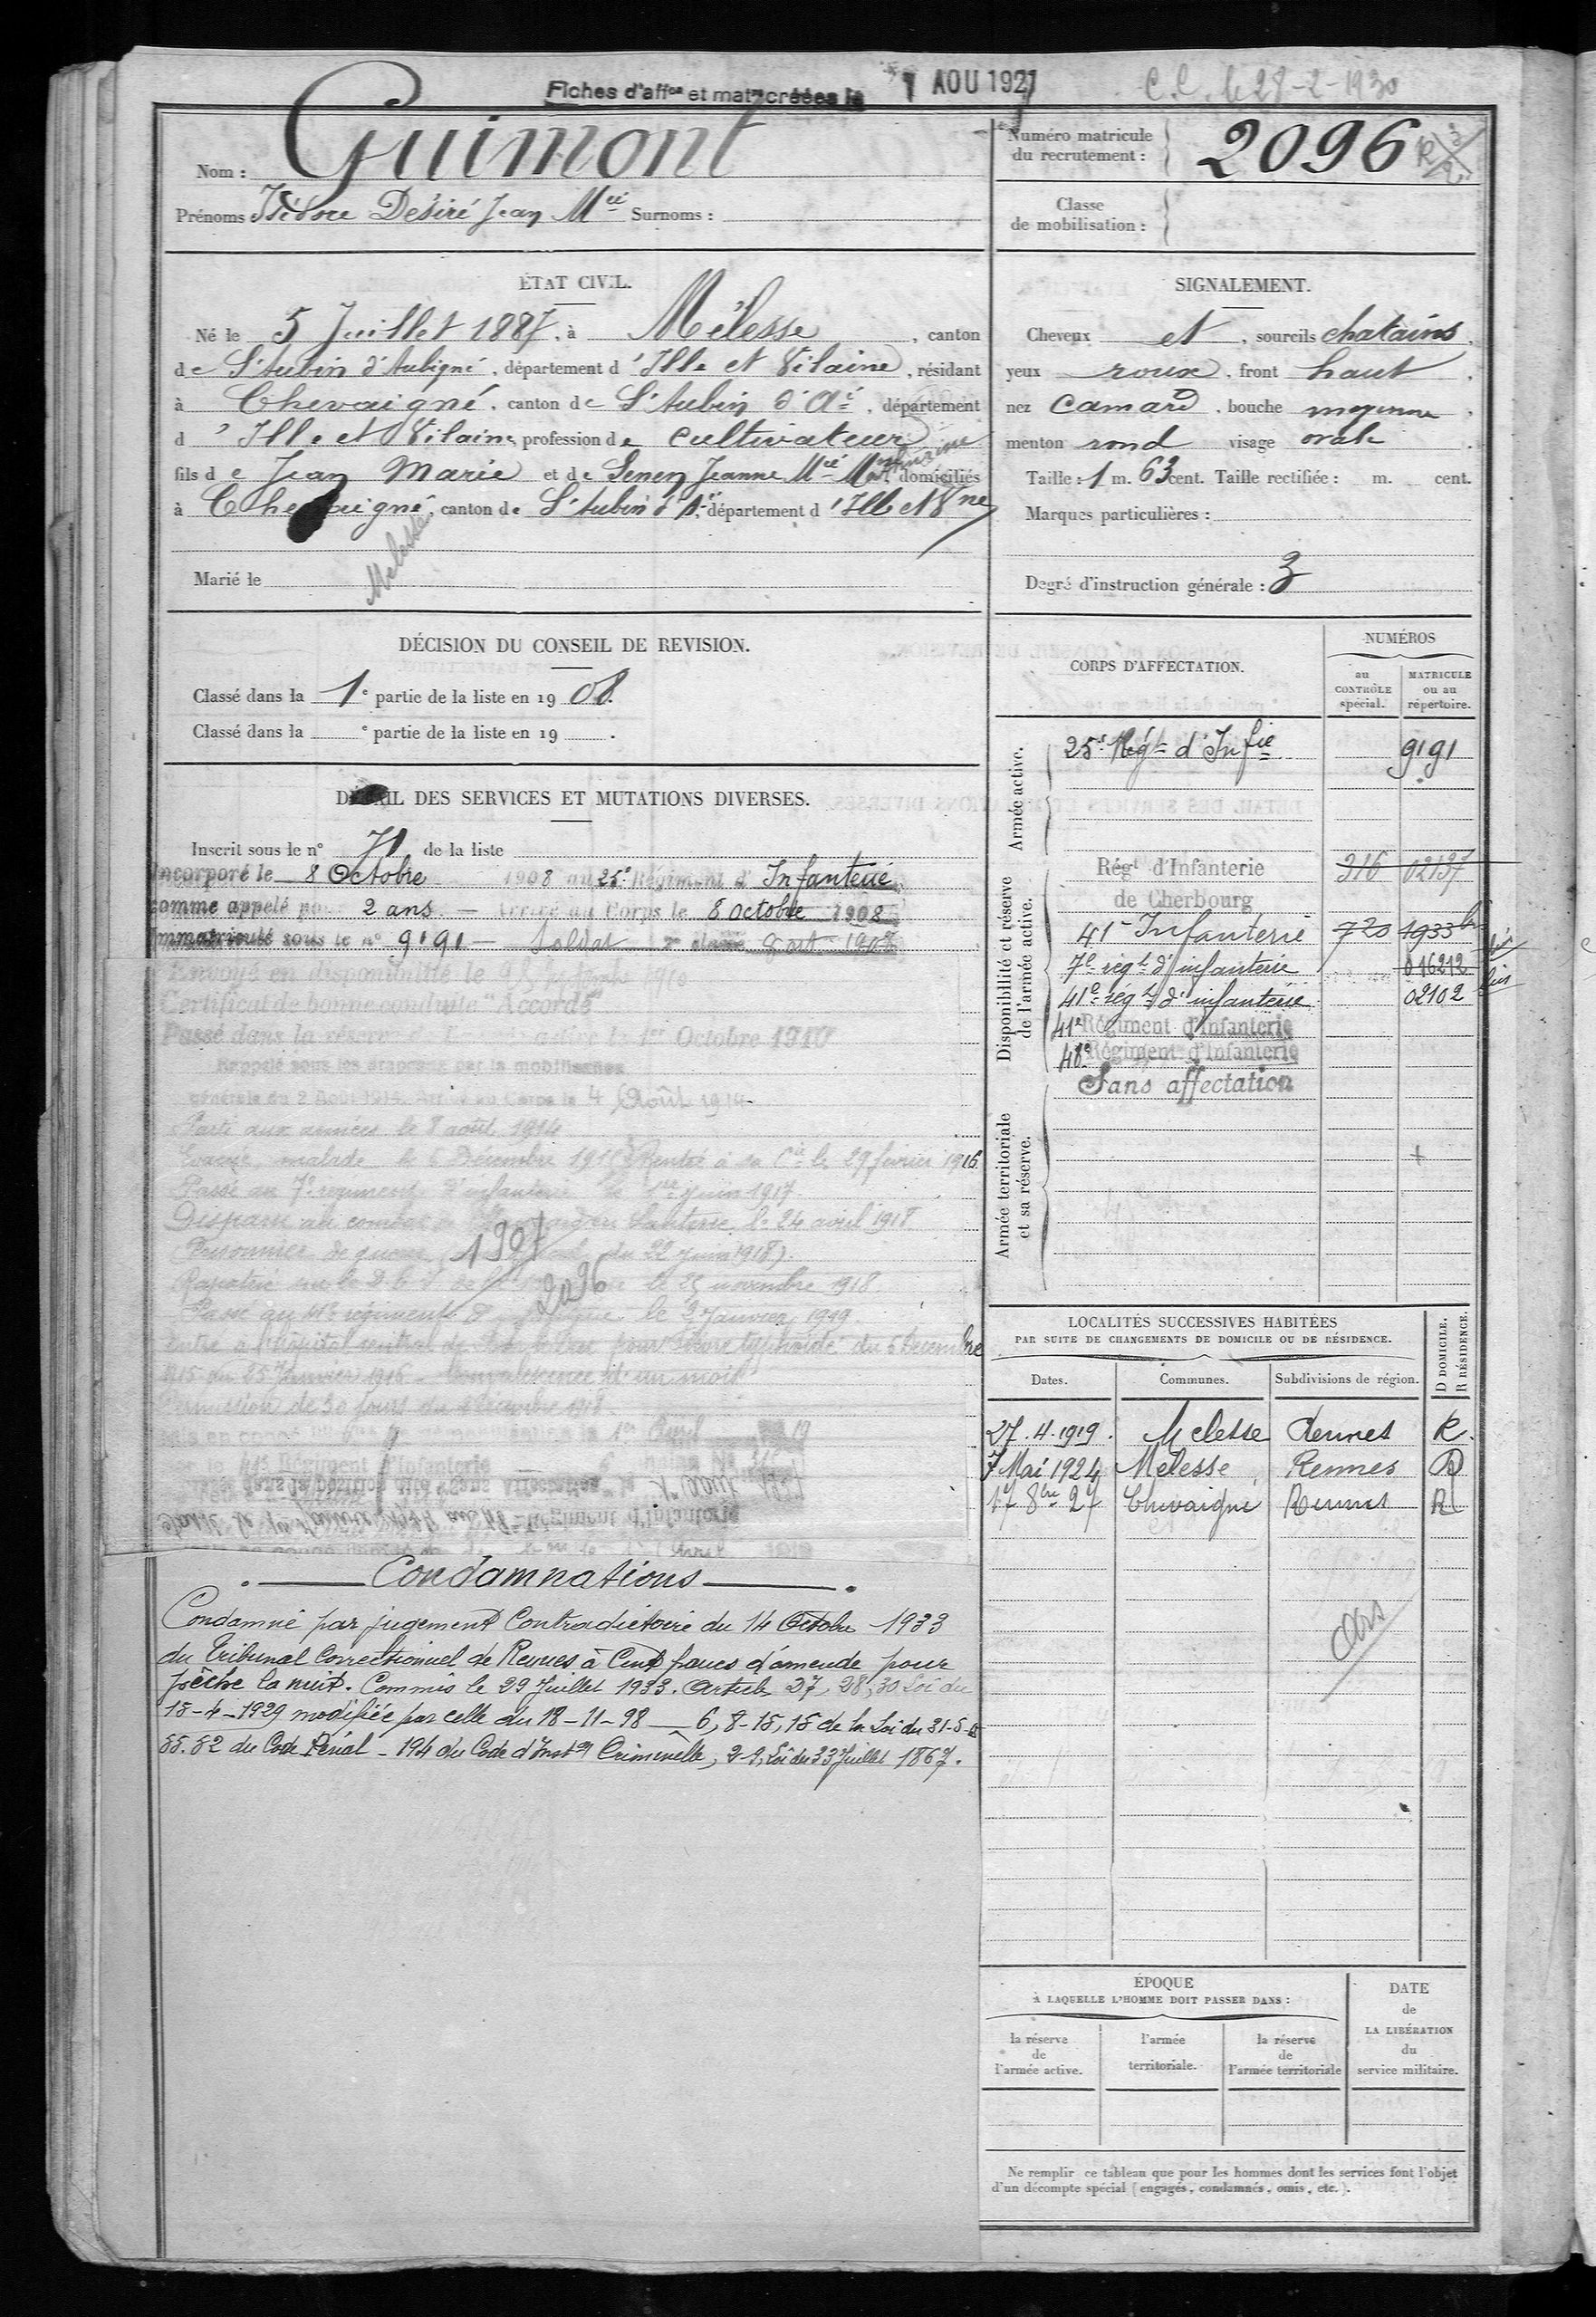 Fiches d'aff^on et mat^le créées le 1 AOU 1927
C.C. le 28-2-1930
Nom : Guimont
Prénoms : Isidore Désiré Jean M^ie Surnoms :
Numéro matricule
du recrutement : 2096
Classe
de mobilisation :
ÉTAT CIVIL.
Né le 5 Juillet 1887, à Mélesse, canton
de S^t Aubin d'Aubigné, département d'Ille et Vilaine, résidant
à Chevaigné, canton de S^t Aubin d'A^é, département
d'Ille et Vilaine, profession de cultivateur
fils de Jean Marie et de Jeanne M^ie Mathurine domiciliés
à Chevaigné, canton de S^t Aubin d'A, département d'Ille et V^ne
Melesse
Marié le
SIGNALEMENT.
Cheveux et, sourcils chatains,
yeux roux, front haut,
nez camard, bouche moyenne,
menton rond visage ovale.
Taille : 1 m. 63 cent. Taille rectifiée : m. cent.
Marques particulières :
Degré d'instruction générale : 3
DÉCISION DU CONSEIL DE REVISION.
Classé dans la 1^e partie de la liste en 1908.
Classé dans la ^e partie de la liste en 19 .
DÉTAIL DES SERVICES ET MUTATIONS DIVERSES.
Inscrit sous le n° 71 de la liste
Incorporé le 8 Octobre 1908 au 25^e Régiment d'Infanterie
comme appelé pour 2 ans. — Arrivé au Corps le 8 octobre 1908
Immatriculé sous le n° 9191 — Soldat 2^e classe 8 oct. 1908
Envoyé en disponibilité le 25 Septembre 1910
Certificat de bonne conduite "Accordé"
Passé dans la réserve de l' le 1er Octobre 1910
Rappelé sous les drapeaux par la mobilisation
générale du 2 Août Arrivé au Corps le 4 Août 1914
Parti aux armées le 8 août 1914
Evacué malade le 5 Décembre 1915 Rentré à sa C^ie le 29 février 1916.
Passé au 7^e régiment d'infanterie le 1^er juin 1917.
Disparu au combat de en Santerre le 24 avril 1918
Prisonnier de guerre du 22 juin 1918).
1907
2096
Rapatrié le 25 novembre 1918.
Passé au 41^e régiment d' le 2 Janvier 1919.
Entré à l'hôpital central de pour fièvre typhoïde du 5 Décembre
1915 au 25 Janvier 1916 - Convalescence d'un mois
Permission de 30 jours du décembre 1918.
le 1^er Avril 19
41^e Régiment d'Infanterie
dans la position dite "Sans Affectation" le 1^er Août 1927
48^e Régiment d'Infanterie
CORPS D'AFFECTATION.
NUMÉROS
au
CONTRÔLE
spécial.
MATRICULE
ou au
répertoire.
Armée active.
25^e Rég^t d'Inf^ie 9191
Disponibilité et réserve
de l'armée active.
Rég^t d'Infanterie 316 02137
de Cherbourg
41^e Infanterie 720 1933 bis
7^e rég^t d'infanterie 016212
41^e rég^t d'infanterie 02102
41^e Régiment d'Infanterie
48^e Régiment d'Infanterie
Sans affectation
Armée territoriale
et sa réserve.
LOCALITÉS SUCCESSIVES HABITÉES
PAR SUITE DE CHANGEMENTS DE DOMICILE OU DE RÉSIDENCE.
Dates. Communes. Subdivisions de région. D DOMICILE. R RÉSIDENCE.
27.4.1919. Melesse Rennes R.
7 Mai 1924 Melesse Rennes D
17 8^bre 27 Chevaigné Rennes R
Condamnations
Condamné par jugement Contradictoire du 14 Octobre 1933
du Tribunal Correctionnel de Rennes à Cent francs d'amende pour
pêche la nuit. Commis le 29 Juillet 1933. Article 27, 28, 30 Loi du
15-4-1929 modifiée par celle du 18-11-98 — 6, 8-15, 15 de la Loi du 31-5-
55.52 du Code Pénal - 194 du Code d'Inst^on Criminelle, 2-9, Loi du 22 Juillet 1867.
ÉPOQUE
À LAQUELLE L'HOMME DOIT PASSER DANS :
la réserve
de
l'armée active.
l'armée
territoriale.
la réserve
de
l'armée territoriale
DATE
de
LA LIBÉRATION
du
service militaire.
Ne remplir ce tableau que pour les hommes dont les services font l'objet
d'un décompte spécial (engagés, condamnés, omis, etc.).